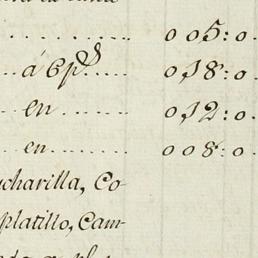 .......... 005:0.
... á 6 p.s .... 0,18:0.
... en ....... 0,12:0.
... en ....... 008:0.
charilla, Co-
platillo, Cam-